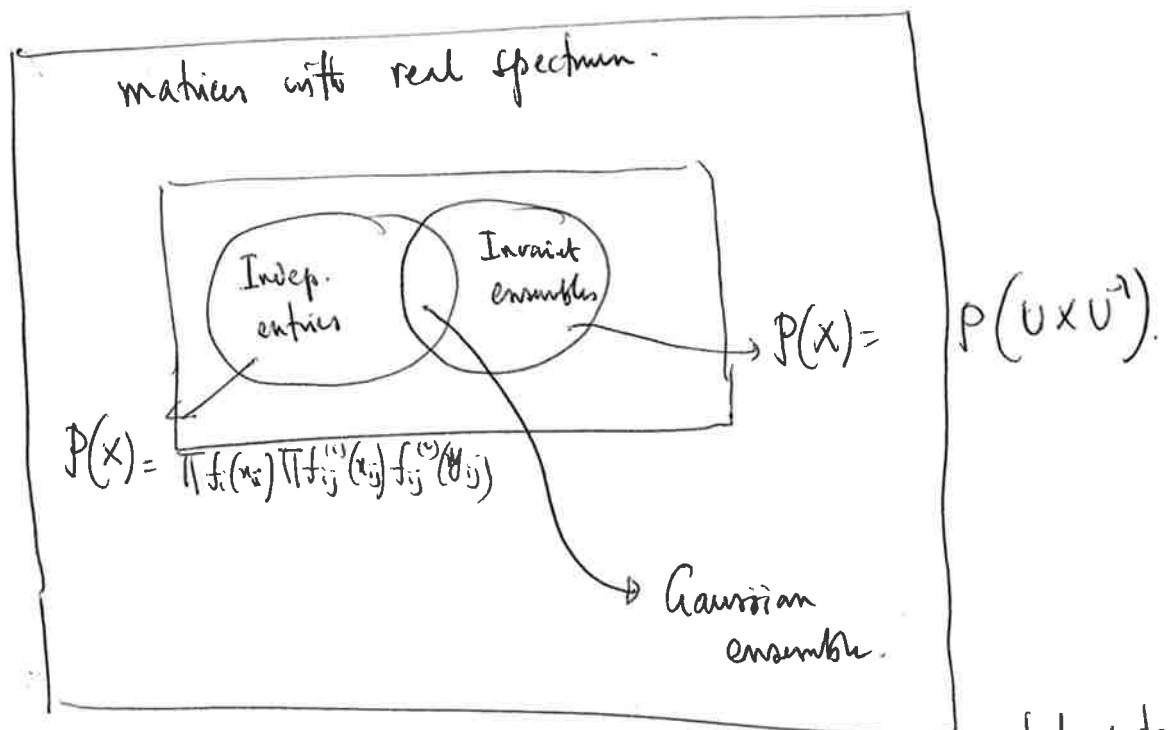 matrices with real spectrum.
Indep.
entries
Invariant
ensembles
P(X) = P(U X U⁻¹).
P(X) = ∏ f_i(x_ii) ∏ f_ij^(1)(x_ij) f_ij^(2)(y_ij)
Gaussian
ensemble.